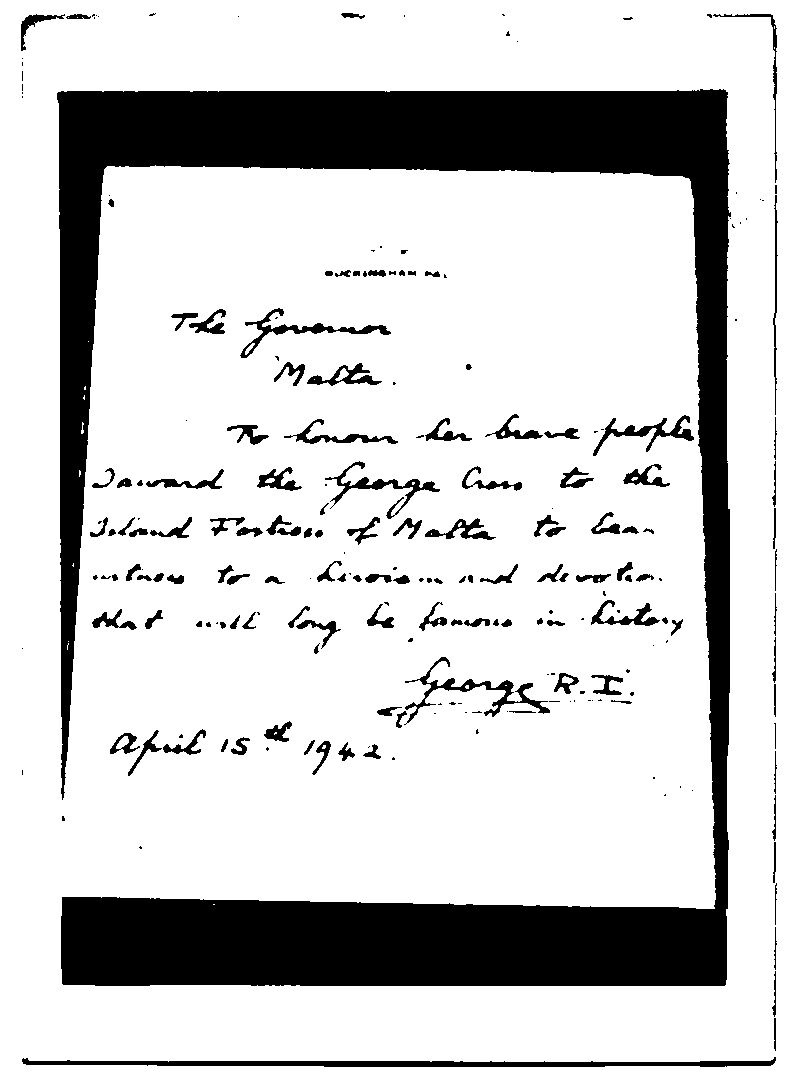 BUCKINGHAM PAL
The Governor
Malta.
To honour her brave people
I award the George Cross to the
Island Fortress of Malta to bear
witness to a heroism and devotion
that will long be famous in history
George R.I.
April 15th 1942.